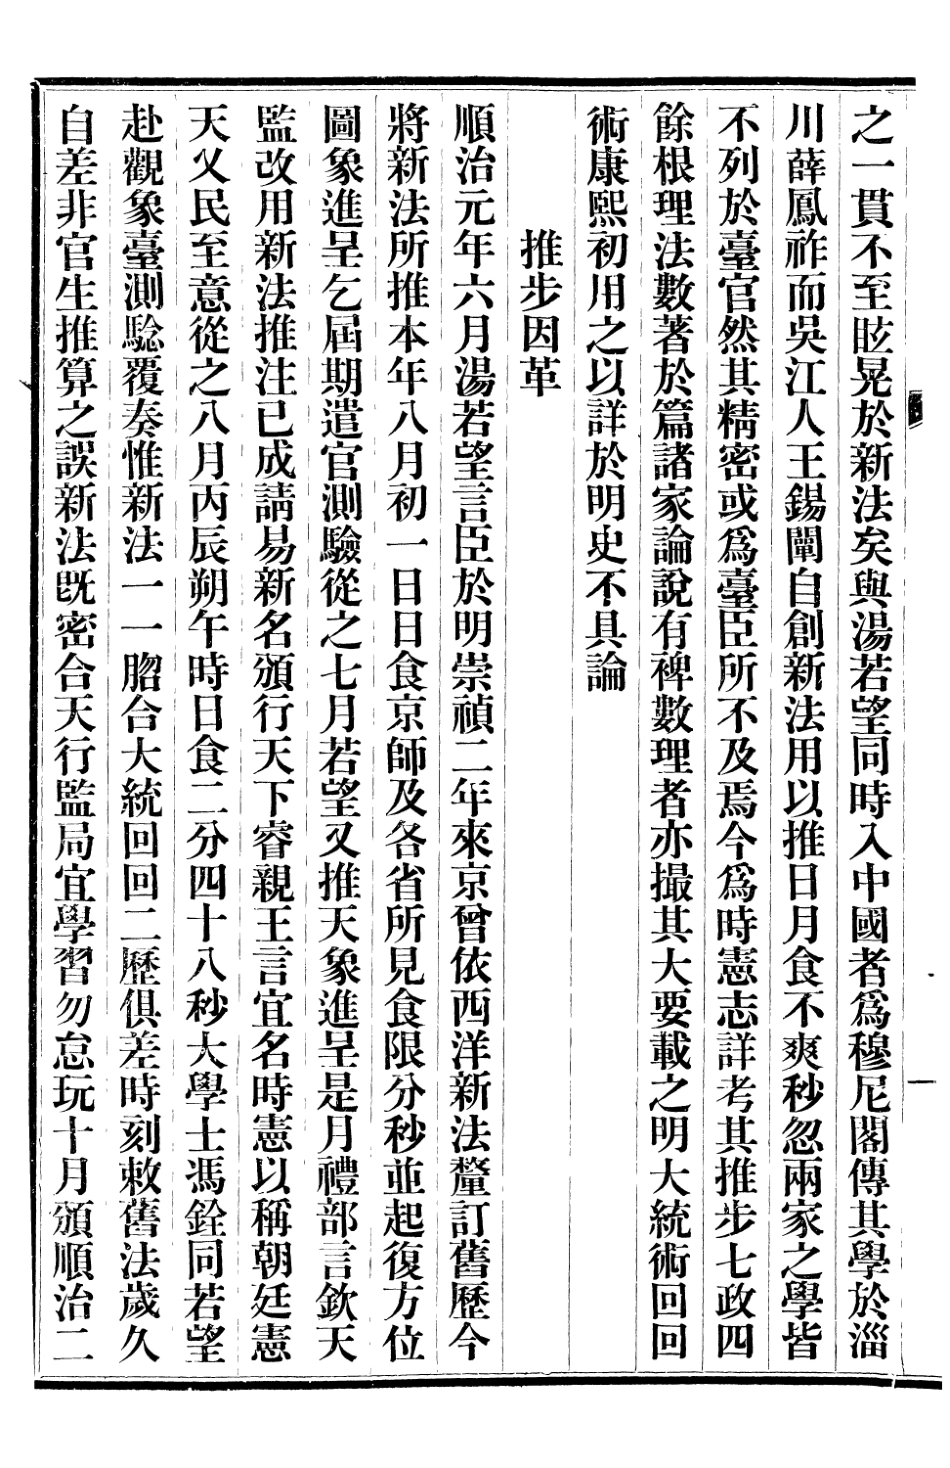 之一貫不至眩晃於新法矣與湯若望同時入中國者爲穆尼閣傳其學於淄
川薛鳳祚而吳江人王錫闡自創新法用以推日月食不爽秒忽兩家之學皆
不列於臺官然其精密或爲臺臣所不及焉今爲時憲志詳考其推步七政四
餘根理法數著於篇諸家論說有裨數理者亦撮其大要載之明大統術回回
術康熙初用之以詳於明史不具論
推步因革
順治元年六月湯若望言臣於明崇禎二年來京曾依西洋新法釐訂舊歷今
將新法所推本年八月初一日日食京師及各省所見食限分秒並起復方位
圖象進呈乞屆期遣官測驗從之七月若望又推天象進呈是月禮部言欽天
監改用新法推注已成請易新名頒行天下睿親王言宜名時憲以稱朝廷憲
天乂民至意從之八月丙辰朔午時日食二分四十八秒大學士馮銓同若望
赴觀象臺測驗覆奏惟新法一一脗合大統回回二歷俱差時刻敕舊法歲久
自差非官生推算之誤新法既密合天行監局宜學習勿怠玩十月頒順治二